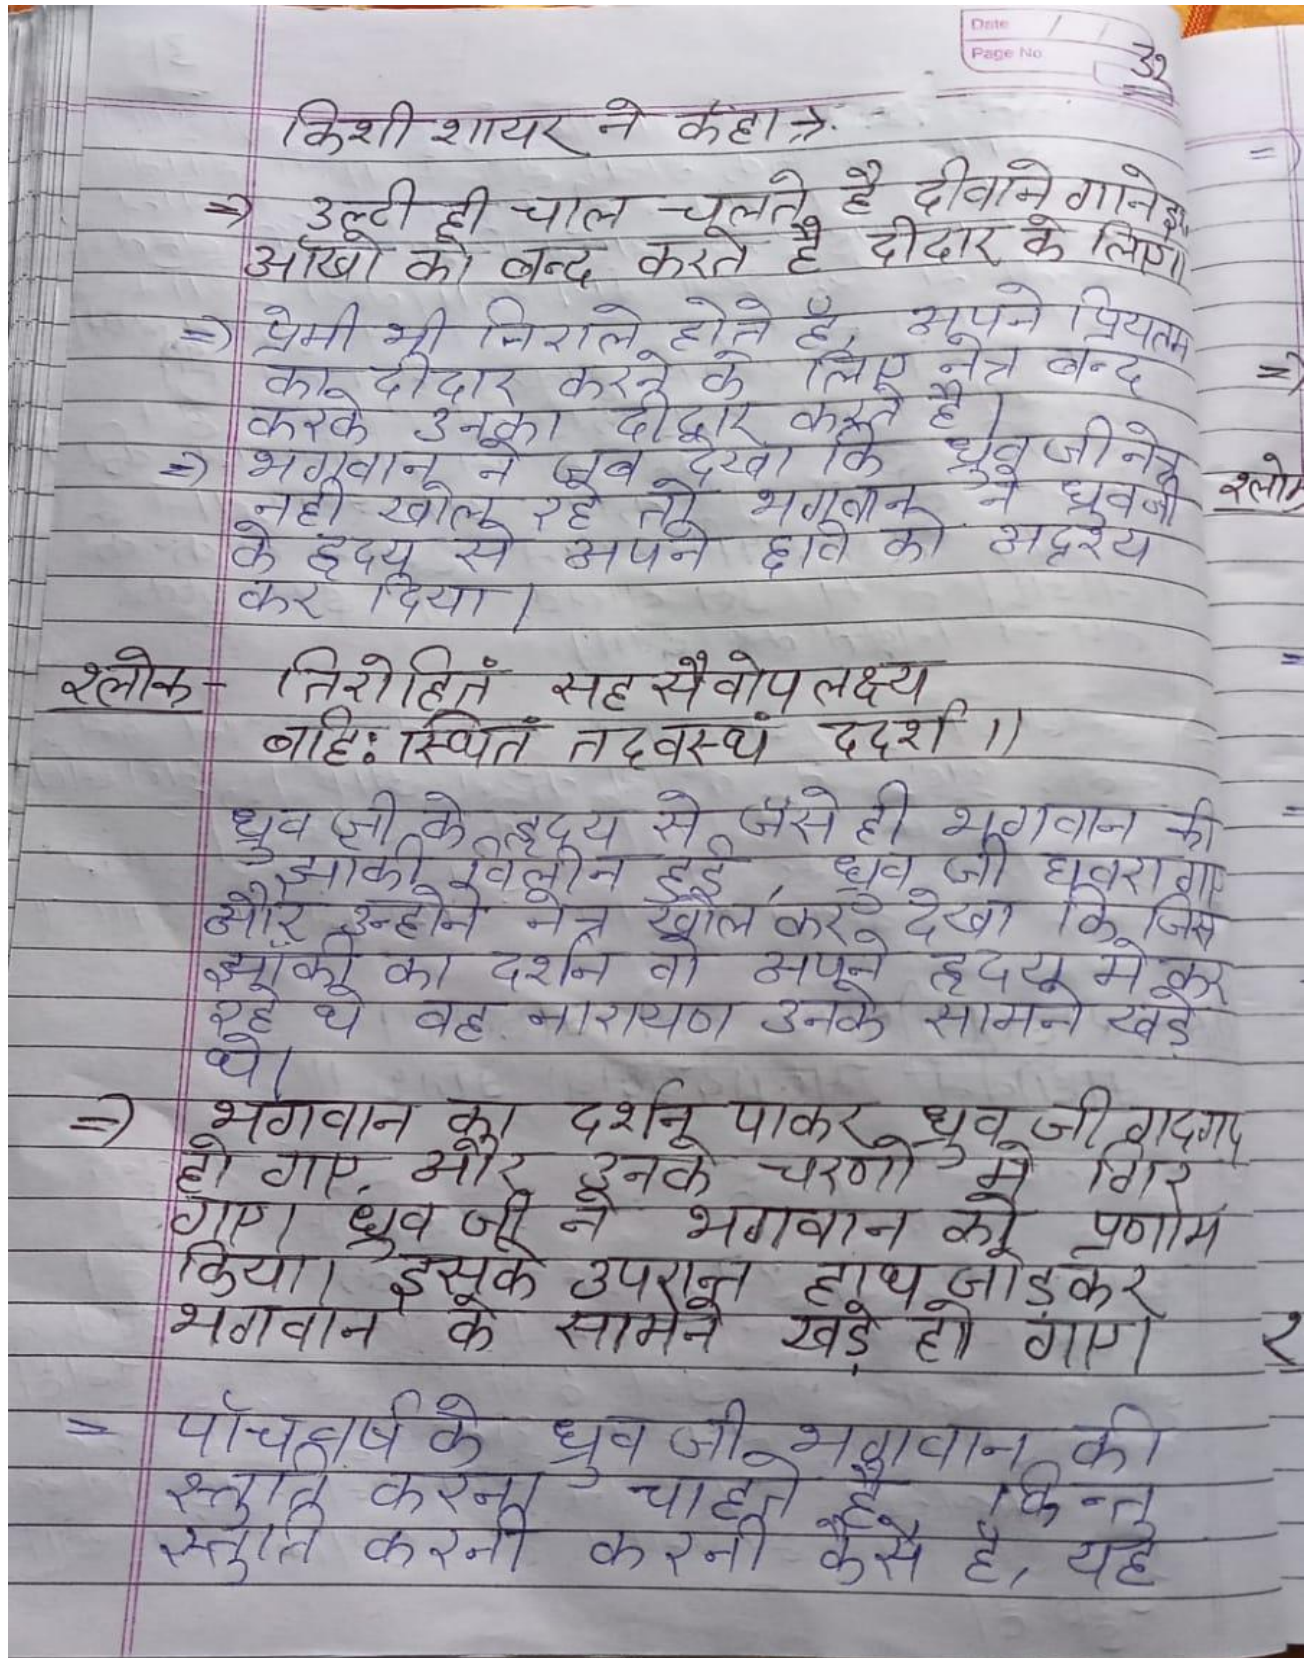 Date / /
Page No 32
किशी शायर ने कहा →
⇒ उल्टी ही चाल चलते है दीवाने गाने इश्
आँखो को बन्द करते है दीदार के लिए॥
⇒ प्रेमी भी निराले होते हैं, अपने प्रियतम
का दीदार करने के लिए नेत्र बन्द
करके उनका दीदार करते है।
⇒ भगवान ने जब देखा कि ध्रुव जी नेत्र
नही खोल रहे तो भगवान ने ध्रुवजी
के हृदय से अपने को अदृश्य
कर दिया।
श्लोक - तिरोहितं सह सैवोप लक्ष्य
बहि: स्थितं तदवस्थं ददर्श ॥
ध्रुव जी के हृदय से जैसे ही भगवान की
झाकी विलीन हुई, ध्रुव जी घवरा गए
और उन्होने नेत्र खोल कर देखा कि जिस
झाँकी का दर्शन वो अपने हृदय मे कर
रहे थे वह नारायण उनके सामने खड़े
थे।
⇒ भगवान का दर्शन पाकर ध्रुव जी गदगद
हो गए. और उनके चरणो मे गिर
गए। ध्रुव जी ने भगवान को प्रणाम
किया। इसके उपरान्त हाथ जोड़कर
भगवान के सामने खड़े हो गए।
= पाँच वर्ष के ध्रुव जी भगवान की
स्तुति करना चाहते है किन्तु
स्तुति करनी करनी कैसे है, यह
=)
=)
श्लोक
=
=